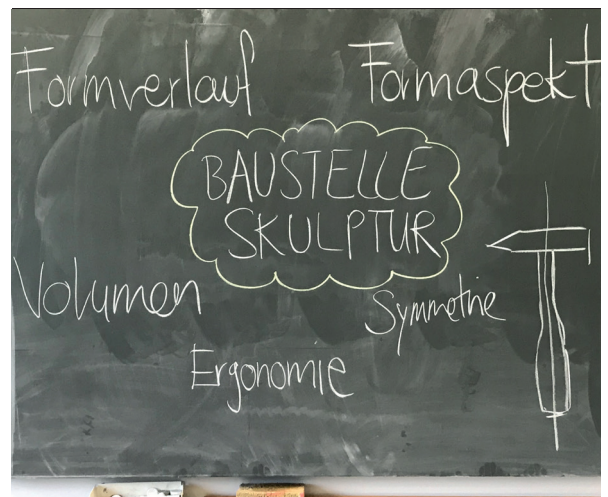 Formverlauf Formaspekt
BAUSTELLE
SKULPTUR
Volumen
Symmetrie
Ergonomie